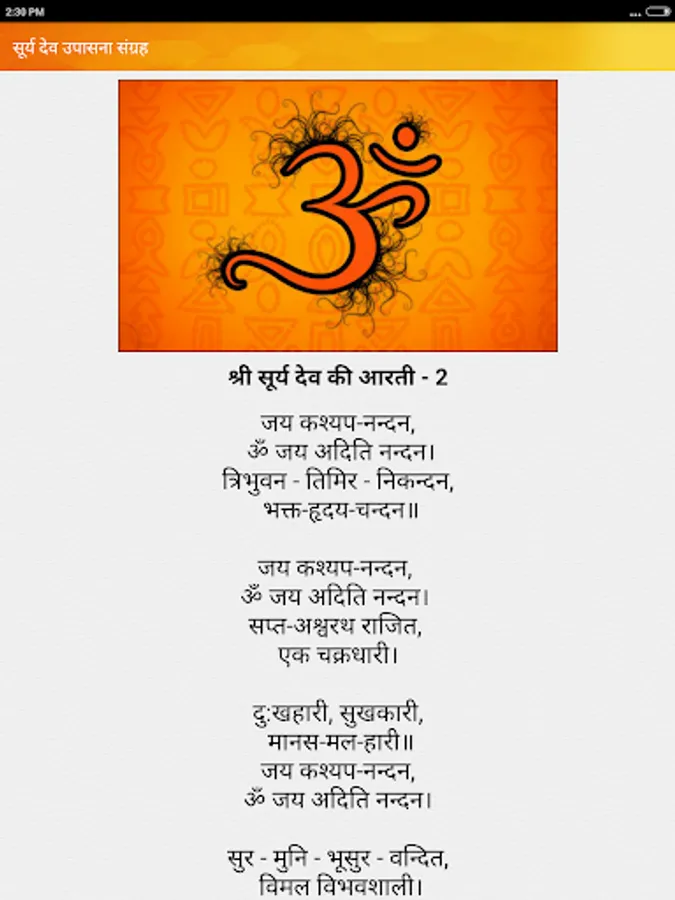 2:30 PM
सूर्य देव उपासना संग्रह
ॐ
श्री सूर्य देव की आरती - 2
जय कश्यप-नन्दन,
ॐ जय अदिति नन्दन।
त्रिभुवन - तिमिर - निकन्दन,
भक्त-हृदय-चन्दन॥
जय कश्यप-नन्दन,
ॐ जय अदिति नन्दन।
सप्त-अश्वरथ राजित,
एक चक्रधारी।
दु:खहारी, सुखकारी,
मानस-मल-हारी॥
जय कश्यप-नन्दन,
ॐ जय अदिति नन्दन।
सुर - मुनि - भूसुर - वन्दित,
विमल विभवशाली।